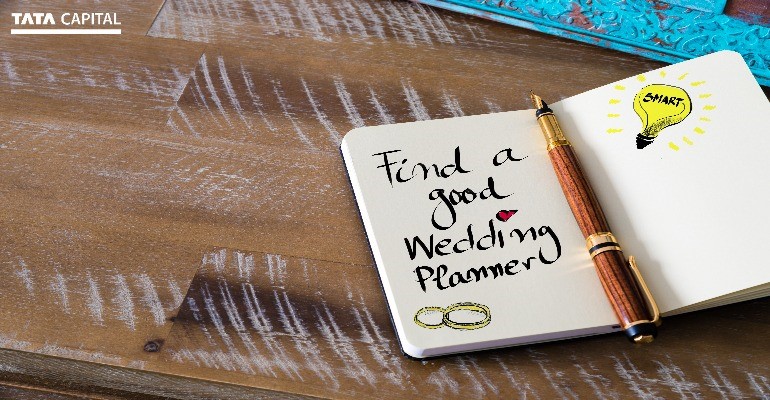 TATA CAPITAL
Find a
good
Wedding
Planner
SMART